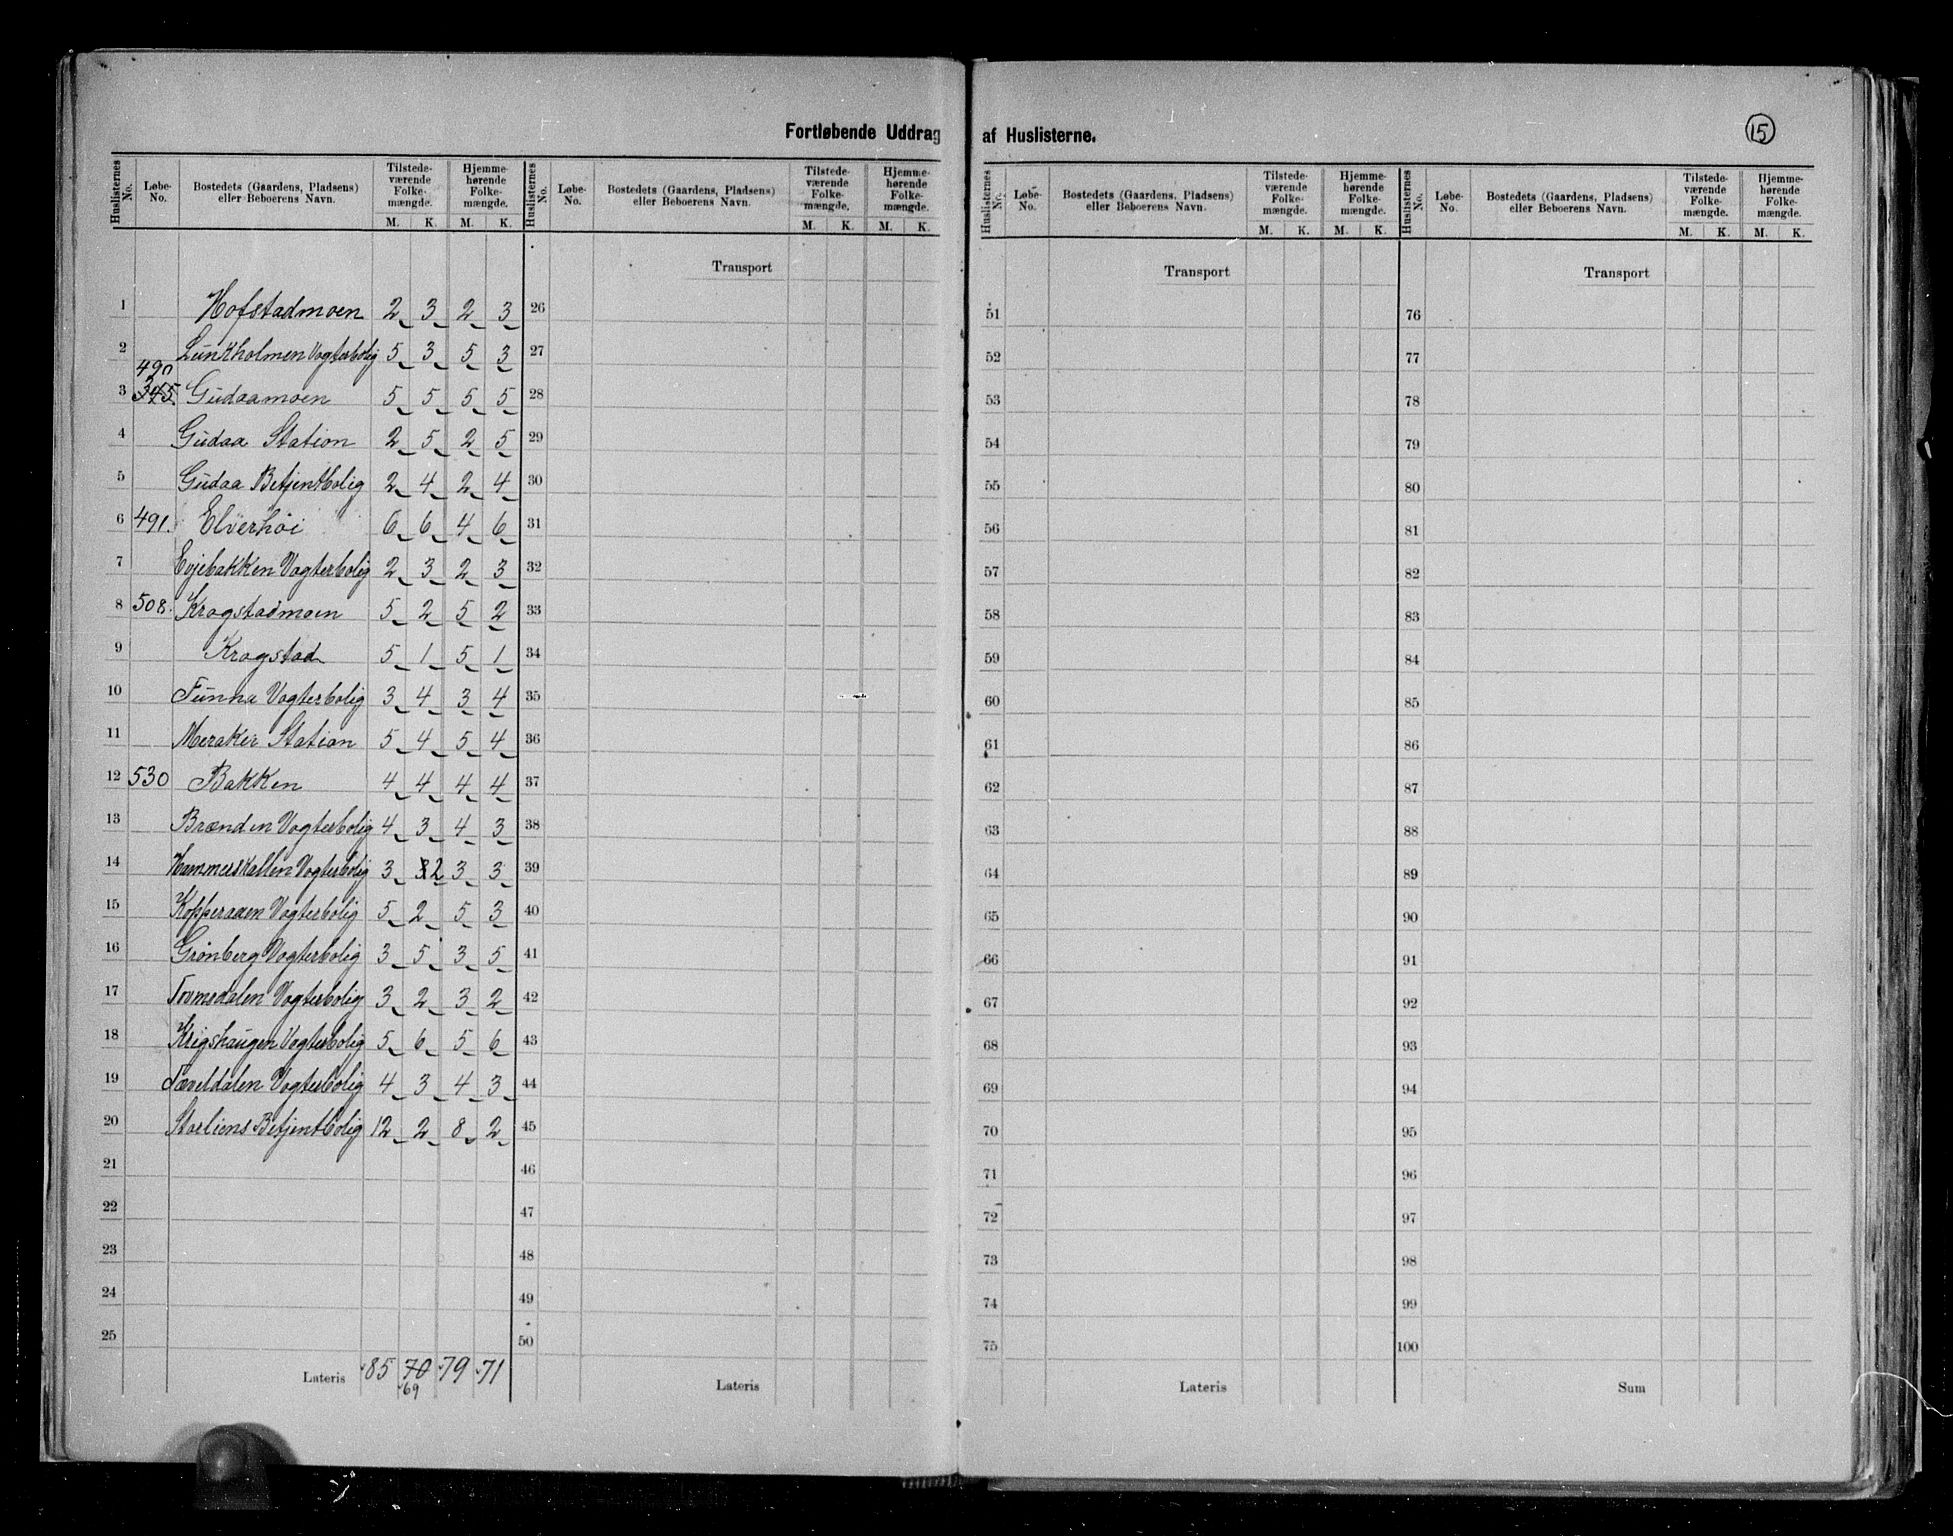 Fortløbende Uddrag af Huslisterne.
15
Huslisternes No. | Løbe-No. | Bostedets (Gaardens, Pladsens) eller Beboerens Navn. | Tilstede-værende Folke-mængde. M. K. | Hjemme-hørende Folke-mængde. M. K.
1 Hofstadmoen 2 3 2 3
2 Lunkholmen Vogterbolig 5 3 5 3
490
3 345. Gudaamoen 5 5 5 5
4 Gudaa Station 2 5 2 5
5 Gudaa Betjentbolig 2 4 2 4
6 491. Elverhöi 6 6 4 6
7 Evjebakken Vogterbolig 2 3 2 3
8 508. Krogstadmoen 5 2 5 2
9 Krogstad 5 1 5 1
10 Funna Vogterbolig 3 4 3 4
11 Meraker Station 5 4 5 4
12 530 Bakken 4 4 4 4
13 Brænden Vogterbolig 4 3 4 3
14 Hammerskallen Vogterbolig 3 2 3 3
15 Kopperaaen Vogterbolig 5 2 5 3
16 Grønberg Vogterbolig 3 5 3 5
17 Tovmodalen Vogterbolig 3 2 3 2
18 Krigshaugen Vogterbolig 5 6 5 6
19 Tæveldalen Vogterbolig 4 3 4 3
20 Storliens Betjentbolig 12 2 8 2
21
22
23
24
25
Lateris 85 70 79 71
69
Huslisternes No. | Løbe-No. | Bostedets (Gaardens, Pladsens) eller Beboerens Navn. | Tilstede-værende Folke-mængde. M. K. | Hjemme-hørende Folke-mængde. M. K.
Transport
26
27
28
29
30
31
32
33
34
35
36
37
38
39
40
41
42
43
44
45
46
47
48
49
50
Lateris
Huslisternes No. | Løbe-No. | Bostedets (Gaardens, Pladsens) eller Beboerens Navn. | Tilstede-værende Folke-mængde. M. K. | Hjemme-hørende Folke-mængde. M. K.
Transport
51
52
53
54
55
56
57
58
59
60
61
62
63
64
65
66
67
68
69
70
71
72
73
74
75
Lateris
Huslisternes No. | Løbe-No. | Bostedets (Gaardens, Pladsens) eller Beboerens Navn. | Tilstede-værende Folke-mængde. M. K. | Hjemme-hørende Folke-mængde. M. K.
Transport
76
77
78
79
80
81
82
83
84
85
86
87
88
89
90
91
92
93
94
95
96
97
98
99
100
Sum